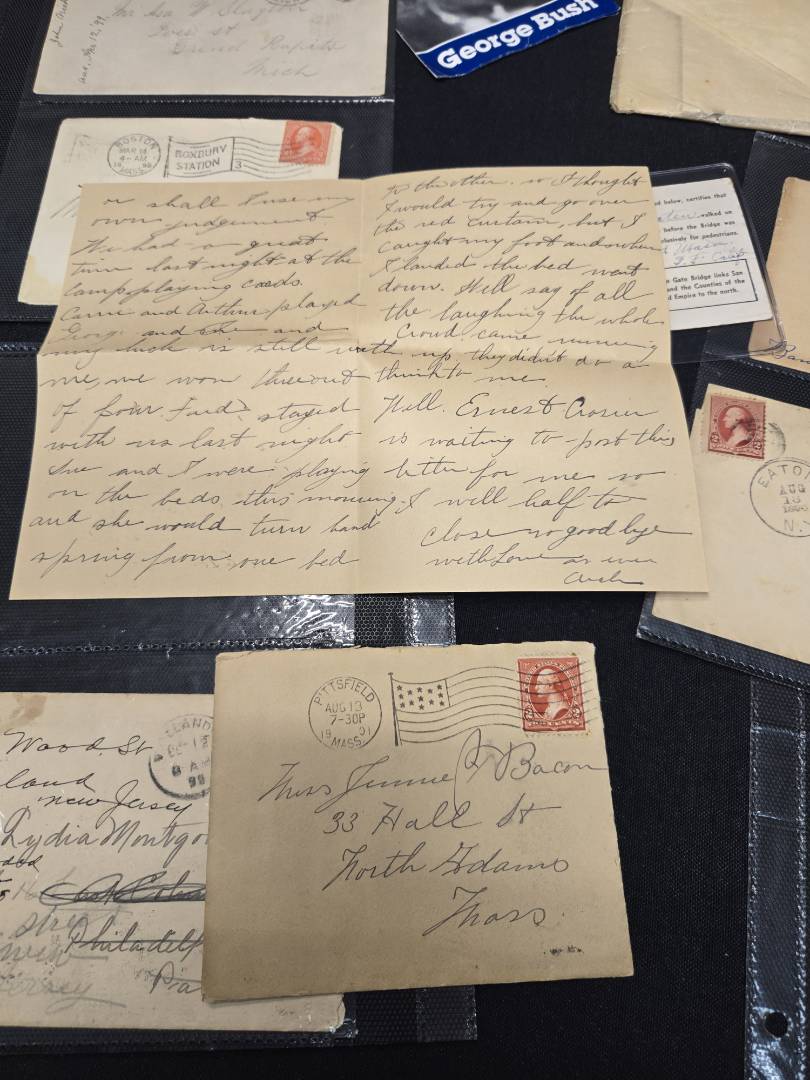 John
Mar 12, 99.
Mr Asa W. Slayton
St
Grand Rapids
Mich
George Bush
BOSTON
MAR 14
4-AM
MASS.
ROXBURY
STATION
3
or shall I use my
own judgement
We had a great
time last night at the
camp, playing cards.
Carrie and Arthur played
George and she and
my luck is still with
me, we won three out
of four. stayed
with us last night
She and I were playing
on the beds, this morning.
and she would turn hand
spring from one bed
to the other. so I thought
I would try and go over
the red curtain, but I
caught my foot and when
I landed the bed went
down. Well say of all
the laughing the whole
Crowd came running
up, they didn't do a
think to me.
Well. Ernest Crosier
is waiting to post this
letter for me so
I will half to
close so good bye
with Love as ever
ed below, certifies that
walked on
before the Bridge was
clusively for pedestrians.
n Gate Bridge links San
and the Counties of the
d Empire to the north.
Ban
EATON
AUG
13
N.
PITTSFIELD
AUG 13
7-30P
1901
MASS.
Miss Jennie Bacon
33 Hall St
North Adams
Mass.
LAND
8 A
98
Wood. St
land
New Jersey
Lydia Montgo
Philadelp
Pa